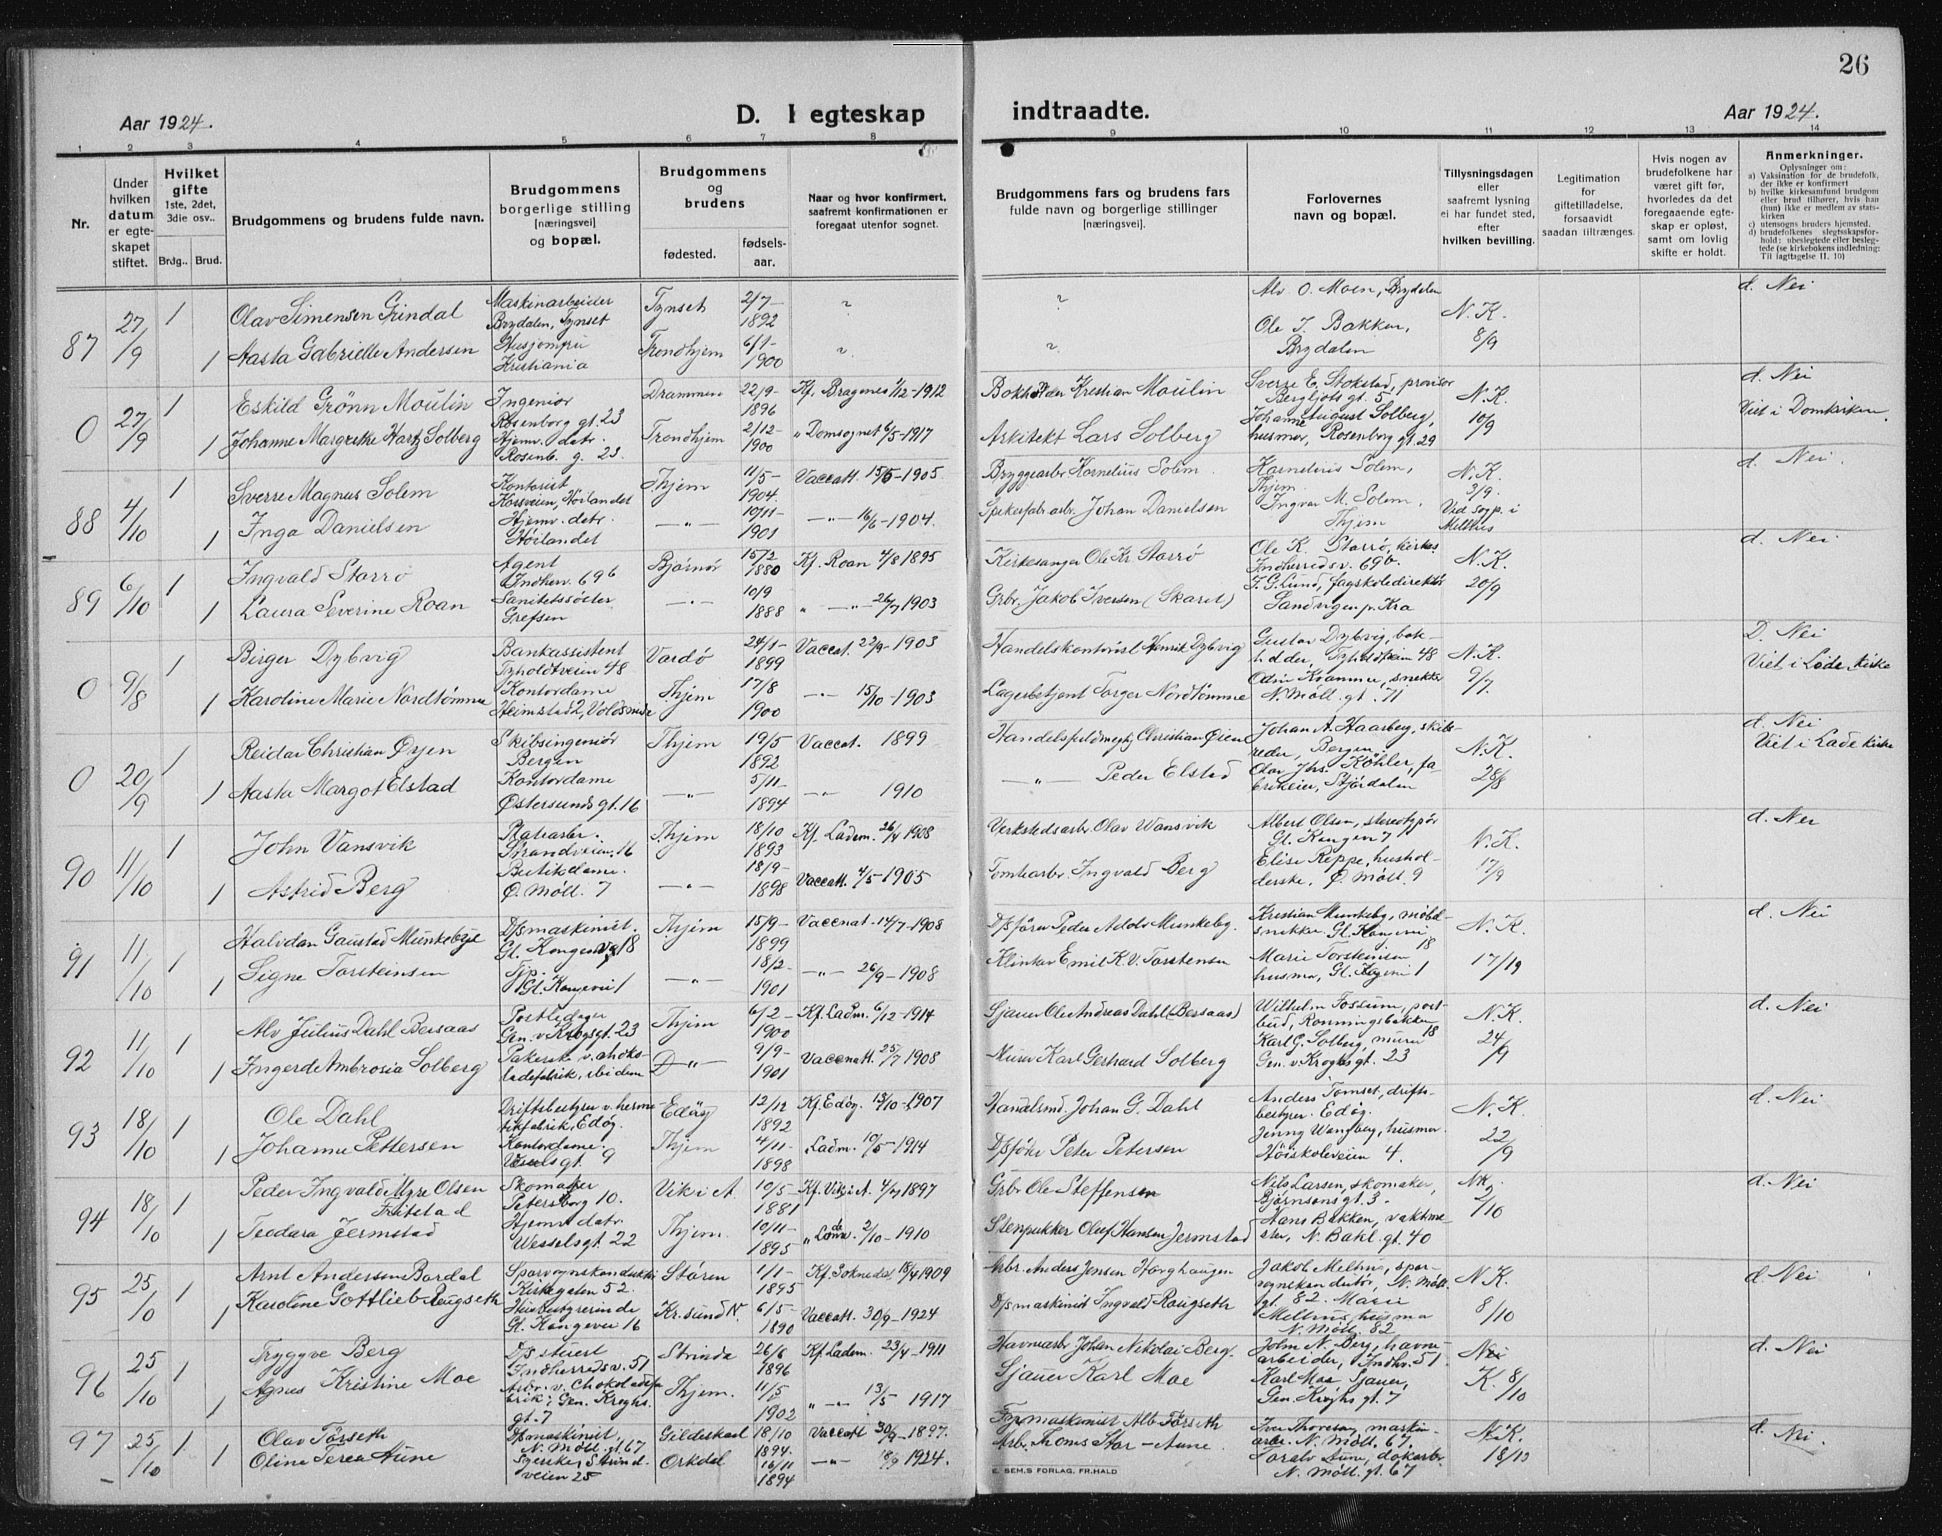 26
Aar 1924.
D. I egteskap
indtraadte.
Aar 1924.
1 2 3 4 5 6 7 8 9 10 11 12 13 14
Nr.
Under hvilken datum er egteskapet stiftet.
Hvilket gifte 1ste, 2det, 3die osv..
Brdg.. Brud.
Brudgommens og brudens fulde navn.
Brudgommens borgerlige stilling [næringsvei] og bopæl.
Brudgommens og brudens
fødested.
fødselsaar.
Naar og hvor konfirmert, saafremt konfirmationen er foregaat utenfor sognet.
Brudgommens fars og brudens fars fulde navn og borgerlige stillinger [næringsvei].
Forlovernes navn og bopæl.
Tillysningsdagen eller saafremt lysning ei har fundet sted, efter hvilken bevilling.
Legitimation for giftetilladelse, forsaavidt saadan tiltrænges.
Hvis nogen av brudefolkene har været gift før, hvorledes da det foregaaende egteskap er opløst, samt om lovlig skifte er holdt.
Anmerkninger.
Oplysninger om:
a) Vaksination for de brudefolk, der ikke er konfirmert
b) hvilke kirkesamfund brudgom eller brud tilhører, hvis han (hun) ikke er medlem av statskirken
c) utensogns bruders hjemsted.
d) brudefolkenes slegtsskapsforhold: ubeslegtede eller beslegtede (se kirkebokens indledning: Til Iagttagelse II. 10)
87 27/9 1 Olav Simensen Grindal Maskinarbeider Brydalen, Tynset Tynset 2/7-1892 Alv O. Moen, Brydalen N.K. 8/9 d. Nei
1 Aasta Gabrielle Andersen Husjomfru Kristiania Trondhjem 6/1-1900 Ole J. Bakken, Brydalen
0 27/9 1 Eskild Grönn Moulin Ingeniör Rosenborg gt. 23 Drammen 22/9-1896 Kf. Bragenes 1/12-1912 Bokholder Kristian Moulin Sverre E. Stokstad, provisor Bergljots gt. 5 N.K. 10/9 d. Nei
1 Johanne Margrethe Hartz Solberg Hjemv. datr. Rosenb. g. 23. Trondhjem 2/12-1900 " Domsognet 6/5-1917 Arkitekt Lars Solberg Johanne August Solberg, husmor, Rosenborg gt. 29 Viet i Domkirken.
88 4/10 1 Sverre Magnus Solem Kontorist Korsveien, Höilandet Thjem 11/5-1904. Vaccatt. 15/5-1905 Bryggearbr Kornelius Solem Kornelius Solem, Thjem. N.K. 3/9. d. Nei.
1 Inga Danielsen Hjemv. datr. Höilandet -"- 10/11-1901 -"- 16/6-1904. Spikerfabr.arbr. Johan Danielsen Ingvar M. Solem, Thjem Vid sogp. i Melhus
89 6/10 1 Ingvald Storrö Agent Indherr. 696 Björnör 15/2 1880 Kf. Roan 4/8 1895 Kirkesanger Ole Kr. Storrö Ole K. Storrö, kirkes. Indherredsv. 69b. N.K. 20/9 d. Nei
1 Laura Severine Roan Sanitetssöster Grefsen -"- 10/9 1888 " -"- 26/7 1903 Grbr. Jakob Iversen (Skaret) F.G. Lund, fagskoledirektör Sandvigen p. Kra
0 9/8 1 Birger Dybvig Bankassistent Tyholdtveien 48 Vardö 24/1-1899 Vaccat. 22/9-1903 Handelskontorist Henrik Dybvig Gustav Dybvig, bokholder, Tyholdtveien 48 N.K. 9/7. D. Nei
1 Karoline Marie Nordtömme Kontordame Heimstad 2, Voldsminde Thjem 17/8 1900 -"- 15/10-1903 Lagerbetjent Torger Nordtömme Odin Kvamme, snekker N. Möll. gt. 71 Viet i Lade kirke
0 20/9 1 Reidar Christian Öyen Skibsingeniör Bergen Thjem 19/5 1892 Vaccat. 1899 Handelsfuldmegtig Christian Öien Johan A. Haarberg, skibsreder, Bergen. N.K. 28/8 d. Nei
1 Aasta Margot Elstad Kontordame Östersunds gt. 16 -"- 5/11-1894 -"- 1910 -"- Peder Elstad Olav Jhs. Köhler, fabrikeier, Stjördalen Viet i Lade kirke
90 11/10 1 John Vansvik Platearbr. Strandveien 16 Thjem 18/10 1893 Kf. Ladem. 26/4 1908 Verkstedsarbr Olav Wansvik Albert Olsen, stereotypör Gl. Kongev 7 N.K. 17/9 d. Nei
1 Astrid Berg Butikdame. Ö. Möll. 7 -"- 18/9-1898 Vaccatt. 4/5-1905 Tomtearbr. Ingvald Berg Elise Reppe, husholderske, Ö. Möll. 9
91 11/10 1 Halvdan Gaustad Munkebye D/smaskinist. Gl. Kongenvei 18 Thjem 15/9-1899 Vaccnat. 14/7-1908 D/sförer Peder Adolv Munkeby. Kristian Munkeby, möbelsnekker Gl. Kongevei 18 N.K. 17/19 d. Nei
1 Signe Torsteinsen Tjp. Gl. Kongevei 1 -"- 18/2-1901 -"- 26/9-1908 Klinker Emil K.V. Torstensen Marie Torsteinsen husmor, Gl. Kogevei 1
92 11/10 1 Alv Julius Dahl Bersaas Postledager Gen. v Krogsgt. 23 Thjem 6/2-1900 Kf. Ladm. 6/12-1914 Sjauer Ole Andreas Dahl (Bersaas) Wilhelm Fossum, postbud, Ronningsbakken 18 N.K. 24/9 d. Nei
1 Ingerd Ambrosia Solberg Pakerske v. chokoladefabrik, ibidem D -"- 9/9-1901 Vaccnatt. 25/7 1908 Murer Karl Gerhard Solberg Karl G. Solberg, murer Gen. v Kroghs gt. 23
93 18/10 1 Ole Dahl Driftsbestyrer v. hermetikfabrik, Edöy. Edöy 12/12 1892 Kf. Edöy. 13/10-1907 Handelsmd. Johan G. Dahl Anders Tomset, driftsbestyrer. Edöy. N.K. 22/9 d. Nei
1 Johanne Pettersen Kontordame Wesselsgt. 9 Thjem 4/11-1898 " Ladm. 10/5-1914 D/sförer Peter Petersen Jenny Wangberg, husmor. Höiskoleveien 4.
94 18/10 1 Peder Ingvald Myre Olsen Fritstad Skomaker Petersborg 10. Vik i A 10/5-1881 Kf. Vik i A. 4/7 1897 Grbr. Ole Steffensen Nils Larsen, skomaker, Björnsons gt. 3. NK. 2/10 d. Nei
1 Teodora Jermstad Hjemv. datr Wesselsgt. 22 Thjem. 10/11-1895 " Lade 2/10-1910 Stenpukker Oluf Hansen Jermstad Hans Bakken, vaktmester, N. Bakl. gt. 40
95 25/10 1 Arnt Andersen Bordal Sporvognskonduktör Kirkegaten 52. Stören 1/1-1895 Kf. Soknedal 18/4 1909 Arbr. Anders Jensen Haughaugen Jakob Melhus, sporvognskonduktör, N. Möll. gt. 82. N.K. 8/10 d. Nei
1 Karoline Gottlieb Raugseth Husbestyrerinde Gl. Kongevei 16 Kr.sund N. 6/5-1890 Vaccatt. 30/9-1924 D/smaskinist Ingvald Raugseth Marie Melhus, husmor N. Möll. 82
96 25/10 1 Tryggve Berg D/s stuert Indherredsv. 51 Strinda 26/6 1896 Kf. Ladem. 23/4-1911 Havnearbr Johan Nikolai Berg. John N. Berg, havnearbeider, Indhv. 51. N. K. 8/10 d. Nei
1 Agnes Kristine Moe Arbr. v. Chokoladefabrik, Gen. Kroghs gt. 7 Thjem. 11/5 1902 " -"- 13/5 1917 Sjauer Karl Moe Karl Moe Sjauer, Gen. Kröghs gt. 7
97 25/10 1 Olav Törseth D/smaskinist, N. Möll. gt. 67 Gildeskaal 18/10 1894. Vaccatt 30/9-1897. Fyrmaskinist Alb. Törseth Iver Thoresen, maskinarbr. N. Möll. 67. N.K. 18/10 d. Nei.
1 Oline Terea Aune Syerske, Strindveien 25 Orkdal 16/11 1894 -"- 18/9 1924. Arbr. Thoms Stor-Aune. Toralv Aune, dokarbr. N. Möll. gt. 67
E. SEM,S FORLAG, FR.HALD